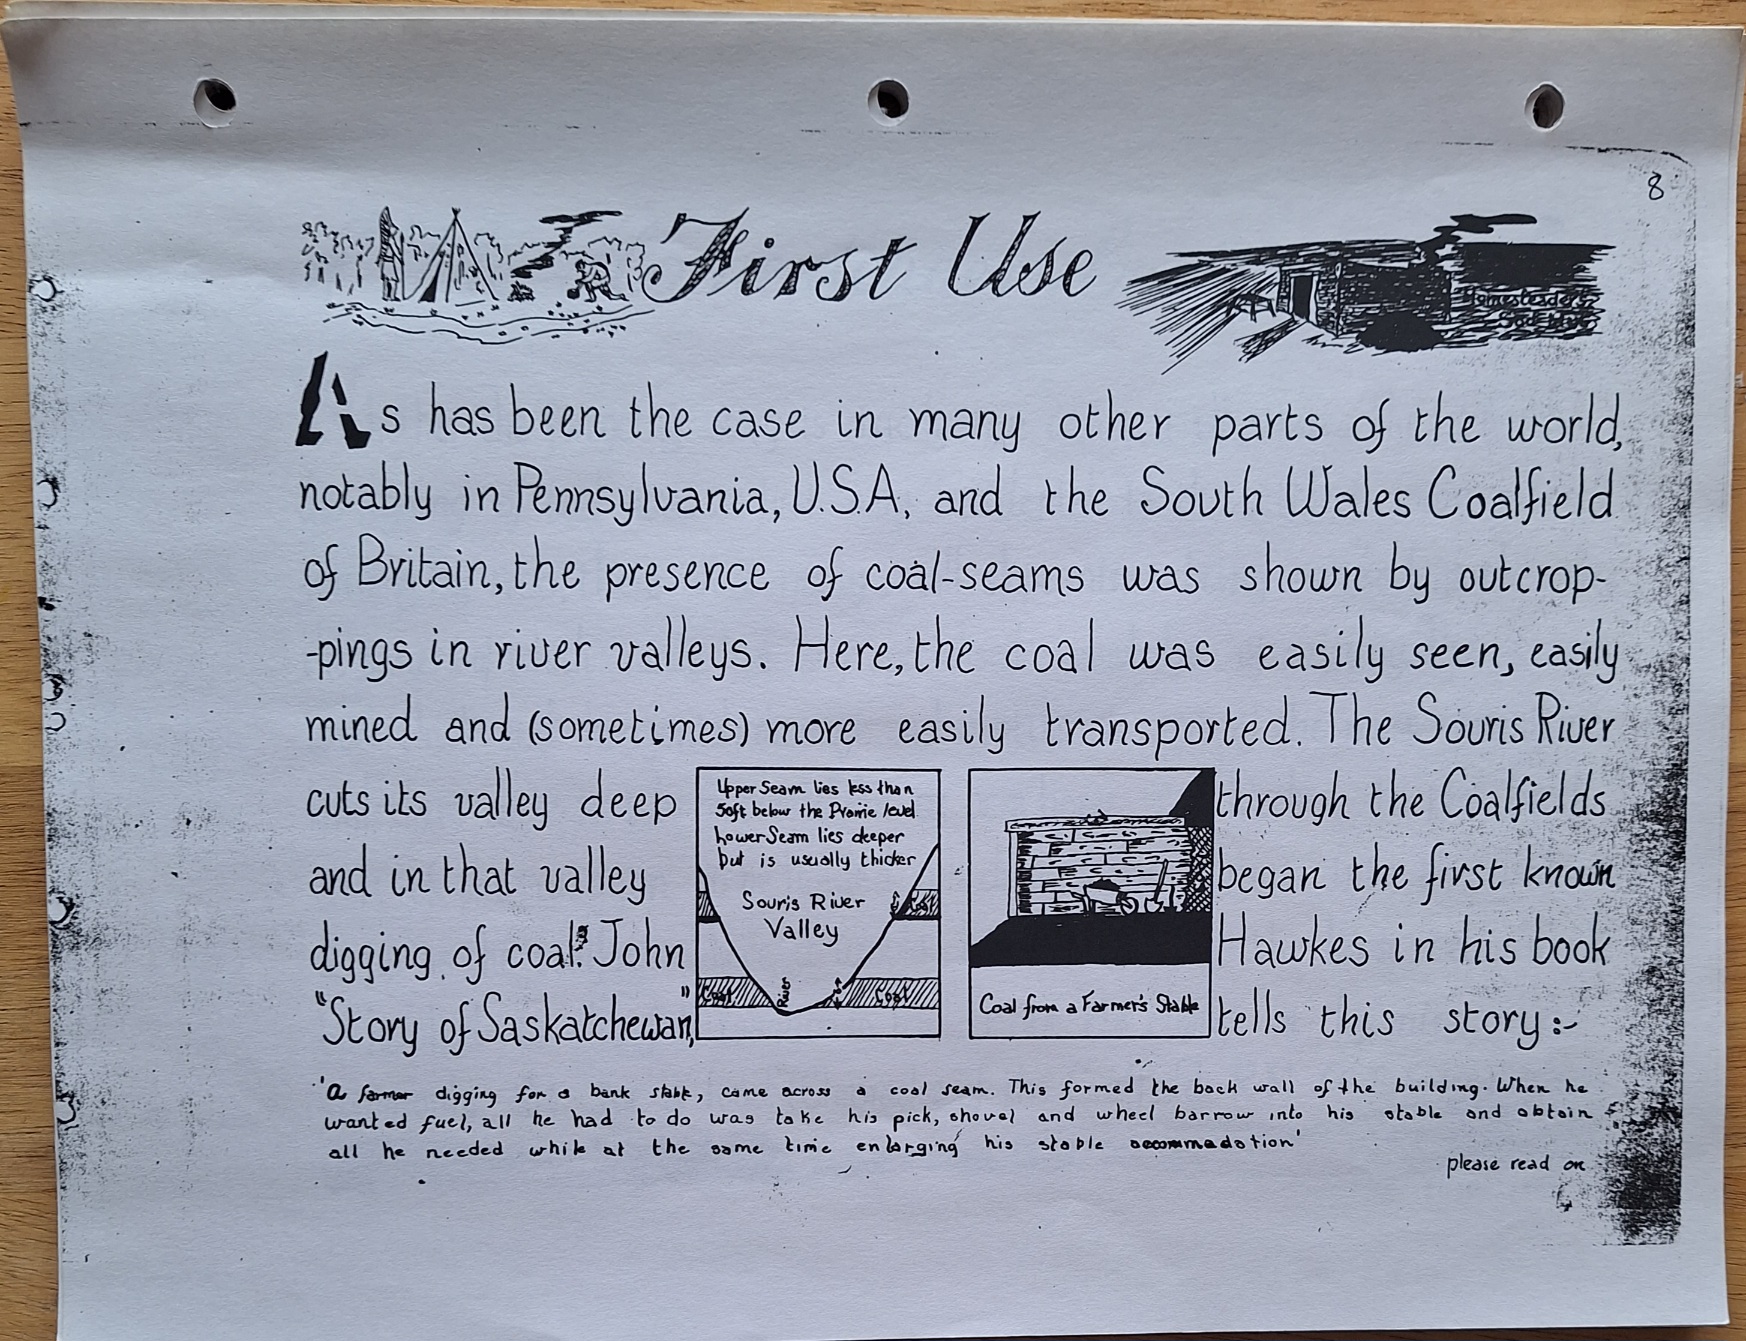 8
First Use
Homesteaders
As has been the case in many other parts of the world,
notably in Pennsylvania, U.S.A, and the South Wales Coalfield
of Britain, the presence of coal-seams was shown by outcrop-
-pings in river valleys. Here, the coal was easily seen, easily
mined and (sometimes) more easily transported. The Souris River
cuts its valley deep through the Coalfields
and in that valley began the first known
digging of coal. John Hawkes in his book
"Story of Saskatchewan," tells this story:-
Upper Seam lies less than
50ft below the Prairie level
Lower Seam lies deeper
but is usually thicker
Souris River
Valley
Coal
Coal
River
Coal
Coal from a Farmer's Stable
'a farmer digging for a bank stable, came across a coal seam. This formed the back wall of the building. When he
wanted fuel, all he had to do was take his pick, shovel and wheel barrow into his stable and obtain
all he needed while at the same time enlarging his stable accommadation'
please read on